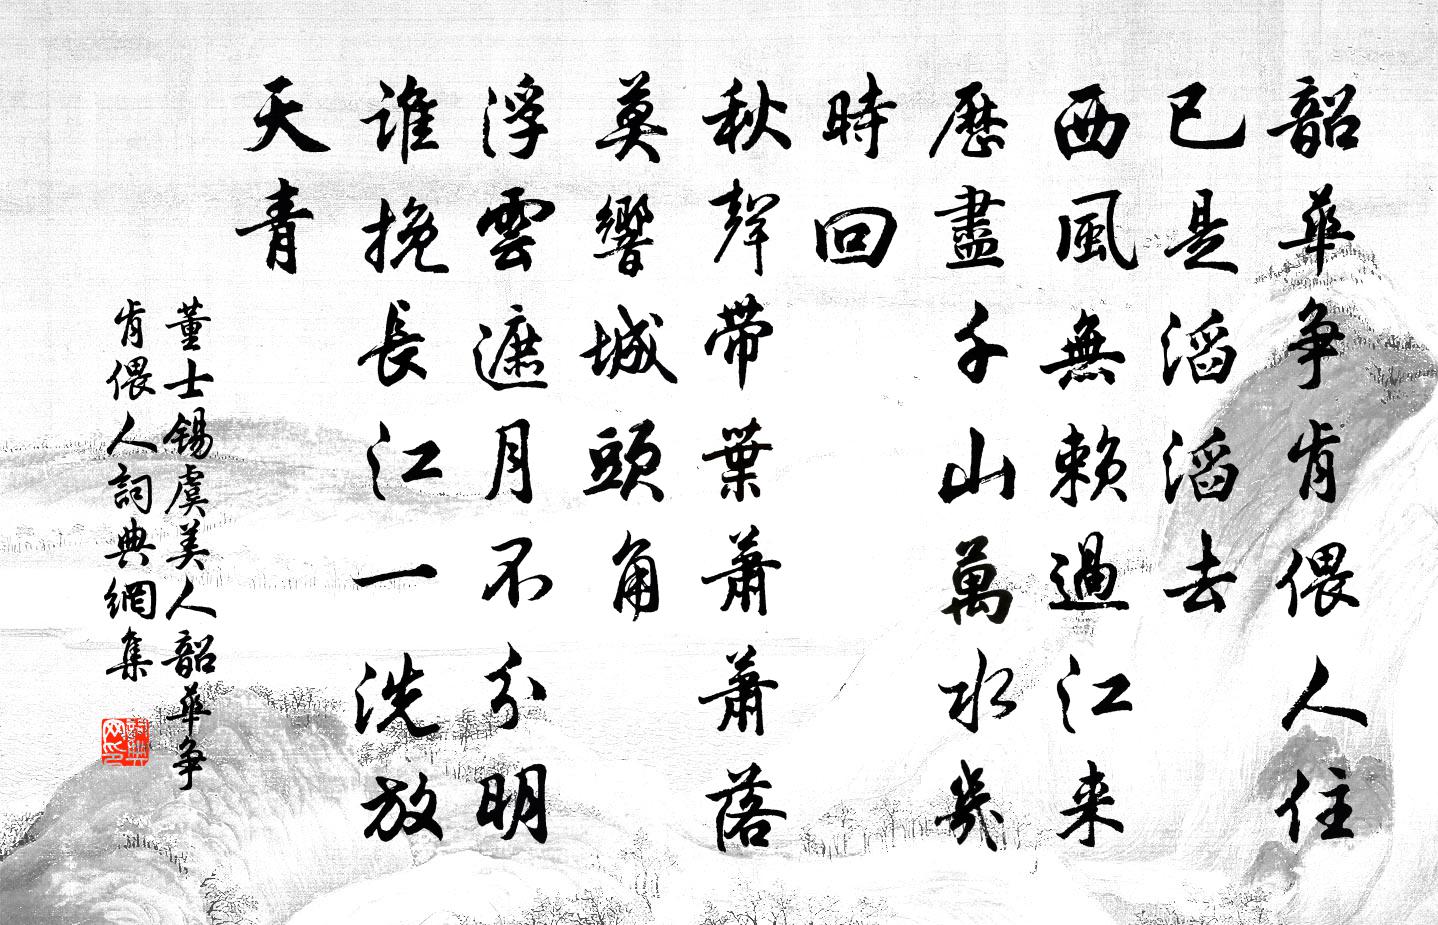 韶華争肯偎人住
已是滔滔去
西風無賴過江来
歷盡千山萬水幾
時回
秋聲帶葉蕭蕭落
莫響城頭角
浮雲遮月不分明
誰挽長江一洗放
天青
董士锡虞美人韶華争
肯偎人詞典網集